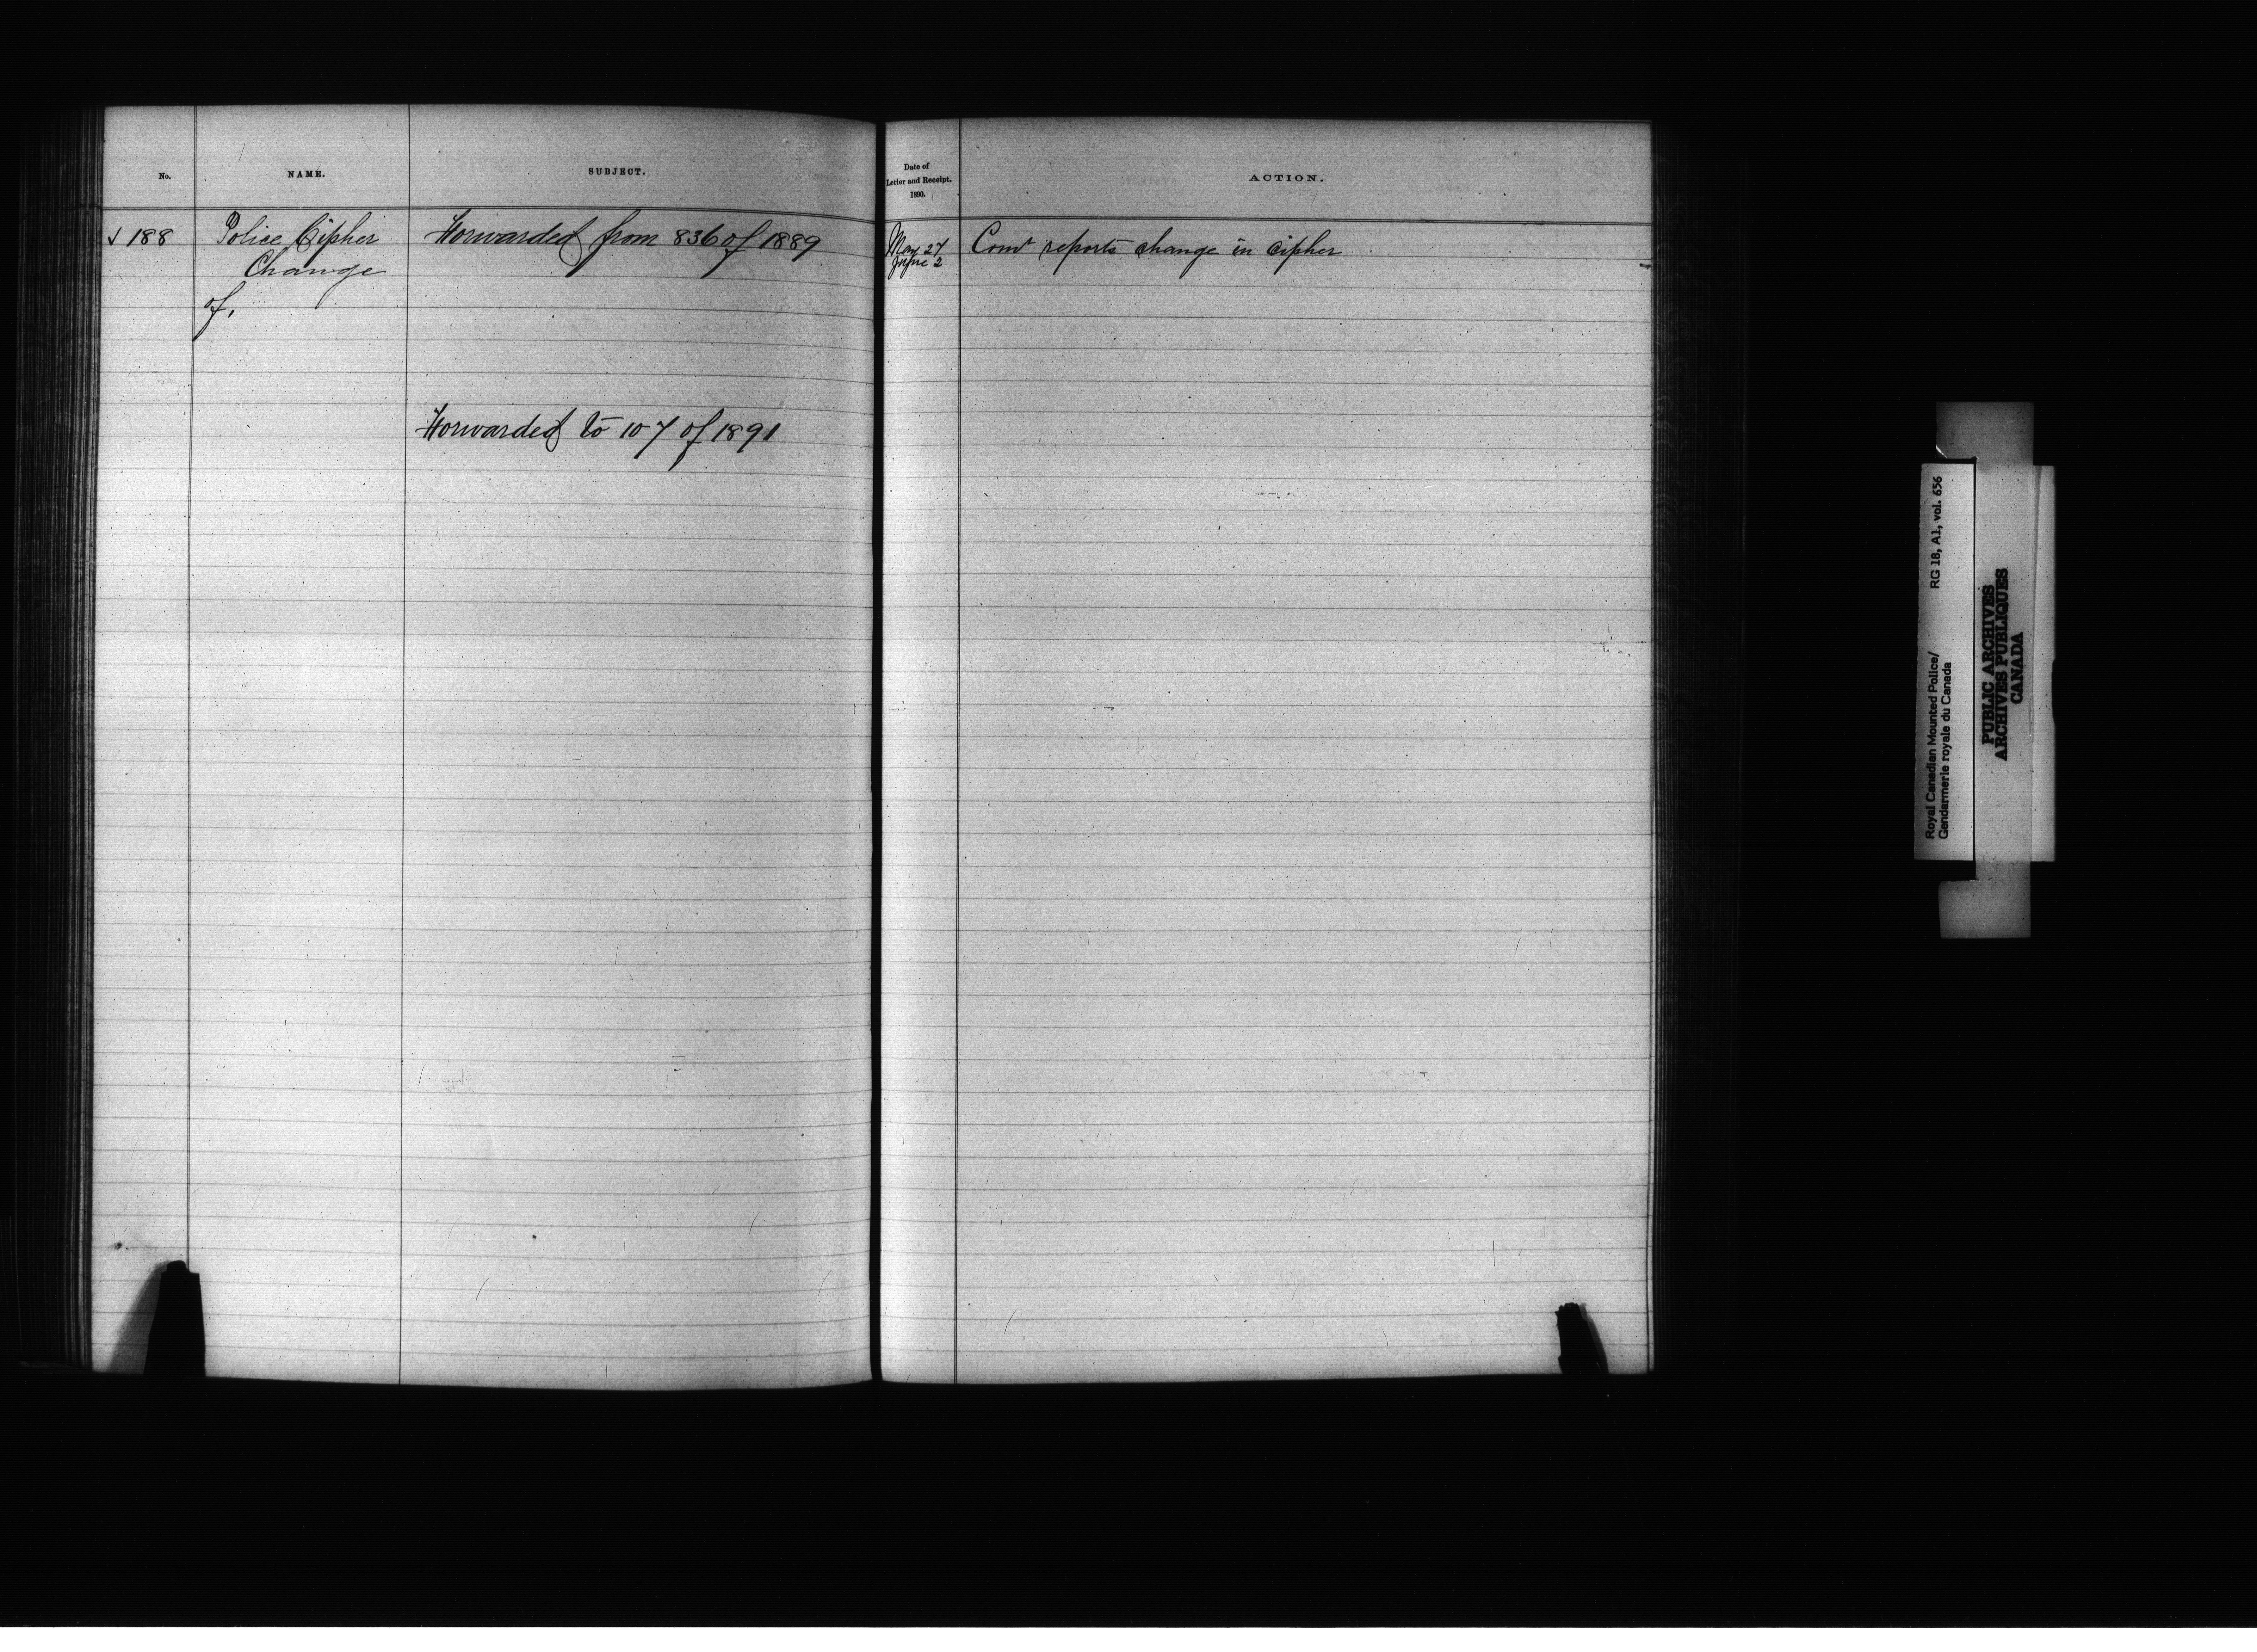 No.
NAME.
SUBJECT.
Date of
Letter and Receipt.
1890.
ACTION.
✓ 188
Police Cipher
Change
of,
Forwarded from 836 of 1889
Forwarded to 107 of 1891
May 27
June 2
Comr reports change in cipher
Royal Canadian Mounted Police/
Gendarmerie royale du Canada
RG 18, A1, vol. 656
PUBLIC ARCHIVES
ARCHIVES PUBLIQUES
CANADA